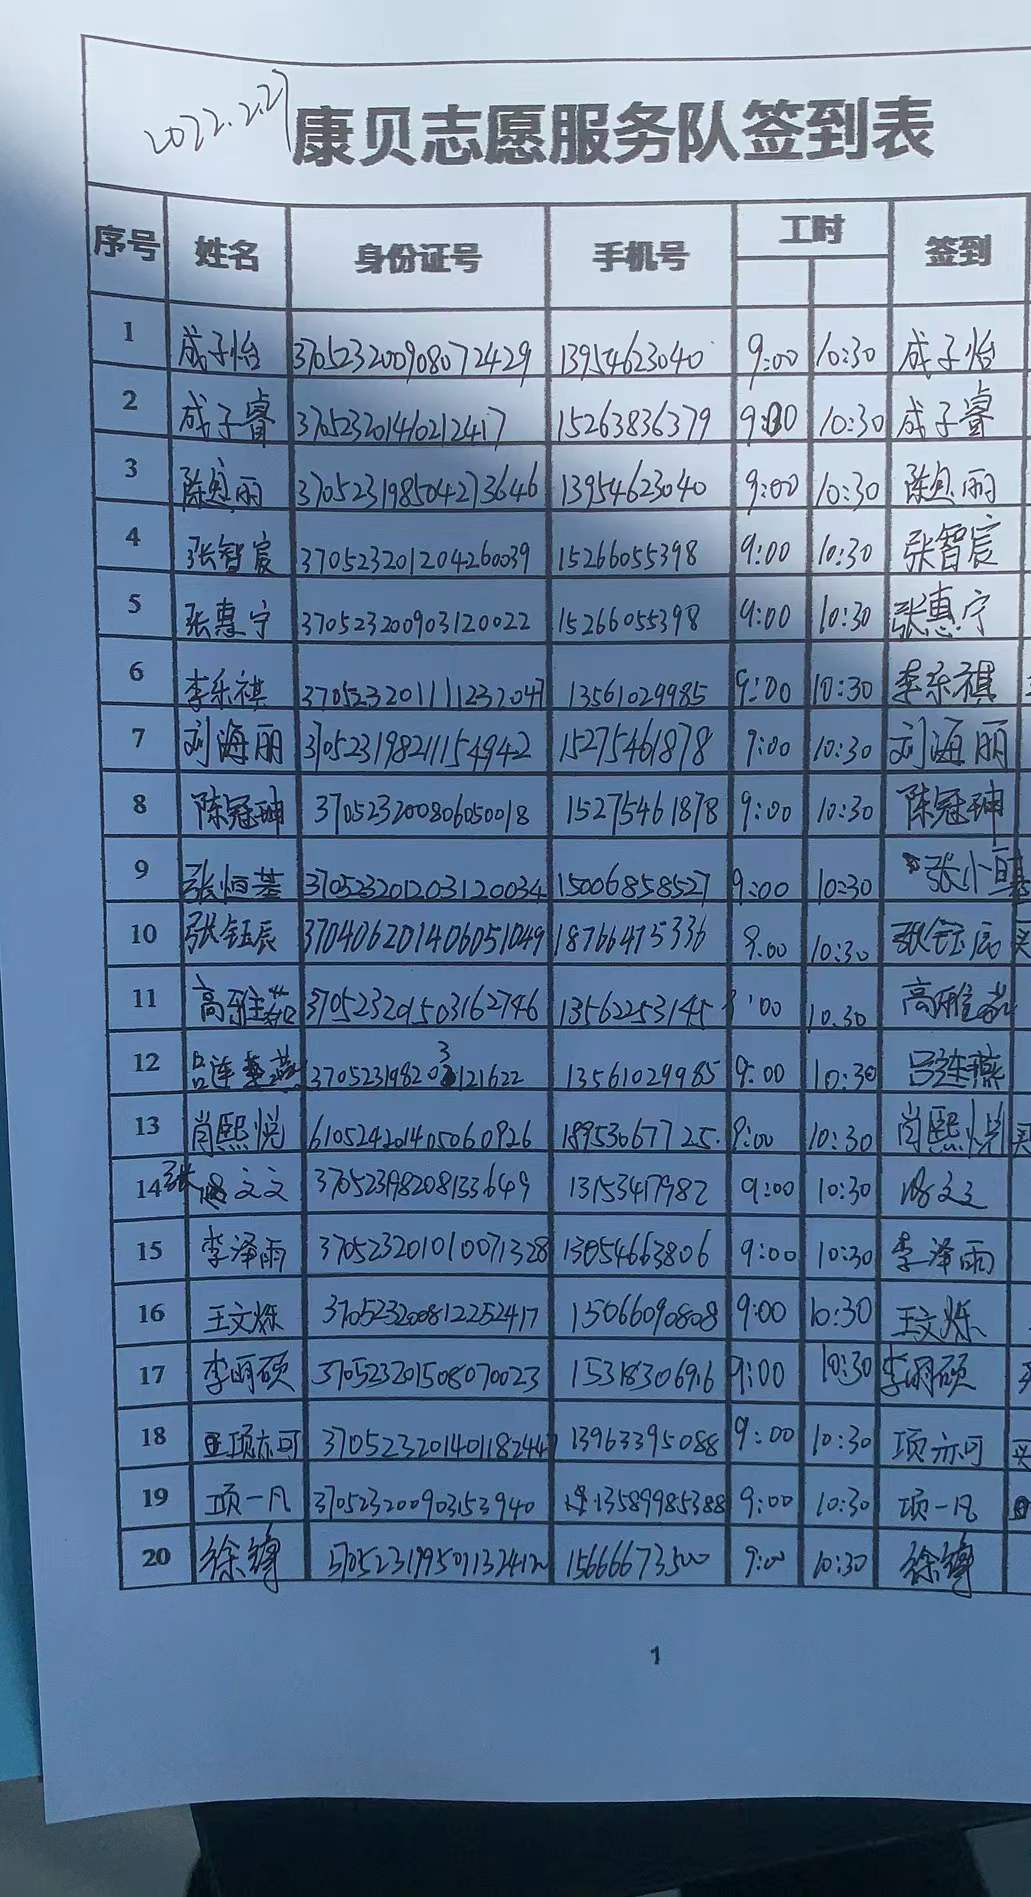 2022.2.27 康贝志愿服务队签到表
序号 姓名 身份证号 手机号 工时 签到
1 成子怡 370523200908072429 13954623040 9:00 10:30 成子怡
2 成子睿 370523201460212417 15263836379 9:00 10:30 成子睿
3 370523198504273646 13954623040 9:00 10:30
4 张智宸 370523201204260039 15266055398 9:00 10:30 张智宸
5 张惠宁 370523200903120022 15266055398 9:00 10:30 张惠宁
6 李乐祺 13561029985 9:00 10:30 李乐祺
7 刘海丽 370523198211154942 15275461878 9:00 10:30 刘海丽
8 陈冠珅 370523200806050018 15275461878 9:00 10:30 陈冠珅
9 张恒基 370523201203120034 15006858527 9:00 10:30
10 张钰辰 370406201406051049 18766475336 9:00 10:30 张钰辰
11 高雅茹 370523201503162746 13562253145 10:30 高雅茹
12 吕连燕 370523198203121622 13561029985 9:00 10:30 吕连燕
13 肖熙悦 610524201405060926 9:00 10:30 肖熙悦
14 张文文 370523198208133649 9:00 10:30 文文
15 李泽雨 370523201010071328 13054663806 9:00 10:30 李泽雨
16 王文烁 370523200812252417 15066090808 9:00 10:30 王文烁
17 李明硕 370523201508070023 15318306916 9:00 10:30 李明硕
18 项亦可 13963395088 9:00 10:30 项亦可
19 项一凡 370523200903153940 13589985388 9:00 10:30 项一凡
20 15666673500 9:00 10:30
1